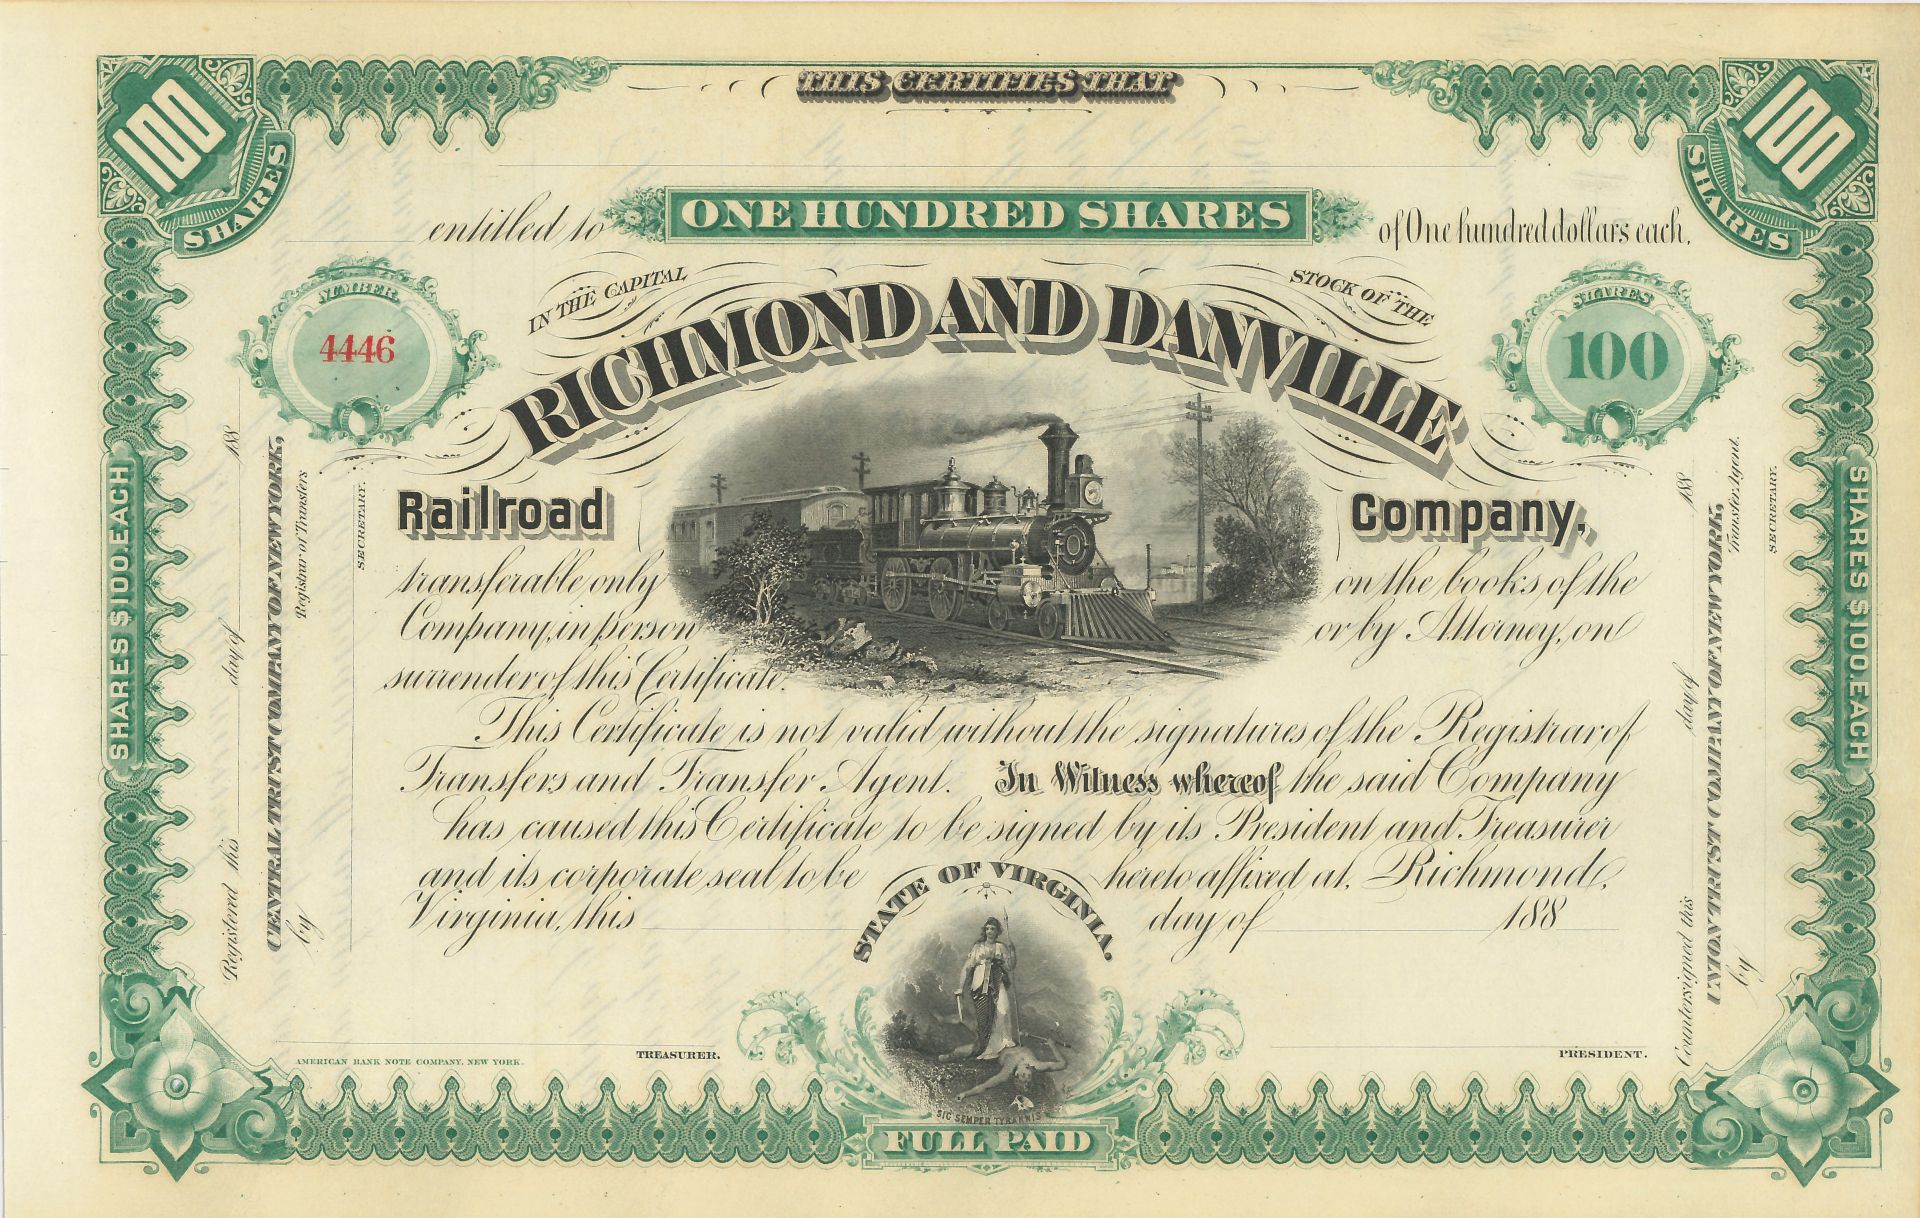 THIS CERTIFIES THAT
100
SHARES
100
SHARES
entitled to ONE HUNDRED SHARES of One hundred dollars each,
IN THE CAPITAL STOCK OF THE
NUMBER
4446
SHARES
100
RICHMOND AND DANVILLE
Railroad Company,
transferable only on the books of the
Company, in person or by Attorney, on
surrender of this Certificate.
This Certificate is not valid without the signatures of the Registrar of
Transfers and Transfer Agent. In Witness whereof the said Company
has caused this Certificate to be signed by its President and Treasurer
and its corporate seal to be hereto affixed at, Richmond,
Virginia, this day of 188
STATE OF VIRGINIA.
SIC SEMPER TYRANNIS
FULL PAID
AMERICAN BANK NOTE COMPANY, NEW YORK.
TREASURER.
PRESIDENT.
SHARES $100. EACH
Registered this day of 188
CENTRAL TRUST COMPANY OF NEW YORK,
Registrar of Transfers
by SECRETARY.
Countersigned this day of 188
UNION TRUST COMPANY OF NEW YORK,
Transfer Agent.
by SECRETARY.
SHARES $100. EACH